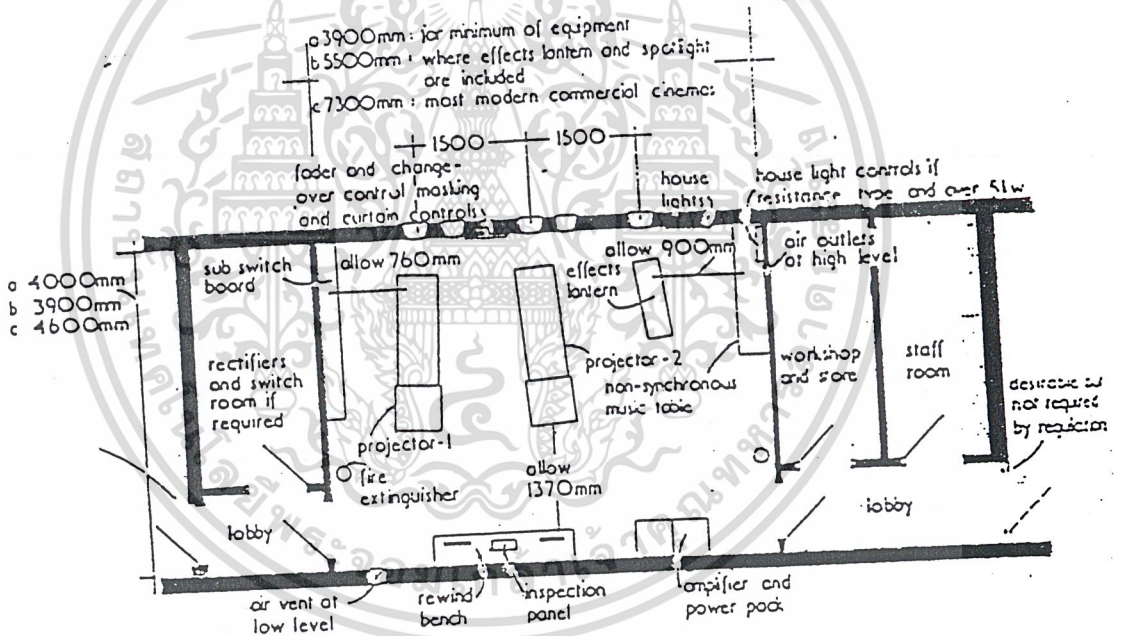 a 3900mm: for minimum of equipment
b 5500mm: where effects lantern and spotlight
are included
c 7300mm: most modern commercial cinemas
1500
1500
fader and change-
over control masking
and curtain controls
house
lights
house light controls if
resistance type and over 5kw
a 4000mm
b 3900mm
c 4600mm
sub switch
board
allow 760mm
allow 900mm
effects
lantern
air outlets
at high level
rectifiers
and switch
room if
required
projector-1
projector-2
non-synchronous
music table
workshop
and store
staff
room
desirable but
not required
by regulation
fire
extinguisher
allow
1370mm
lobby
lobby
air vent at
low level
rewind
bench
inspection
panel
amplifier and
power pack